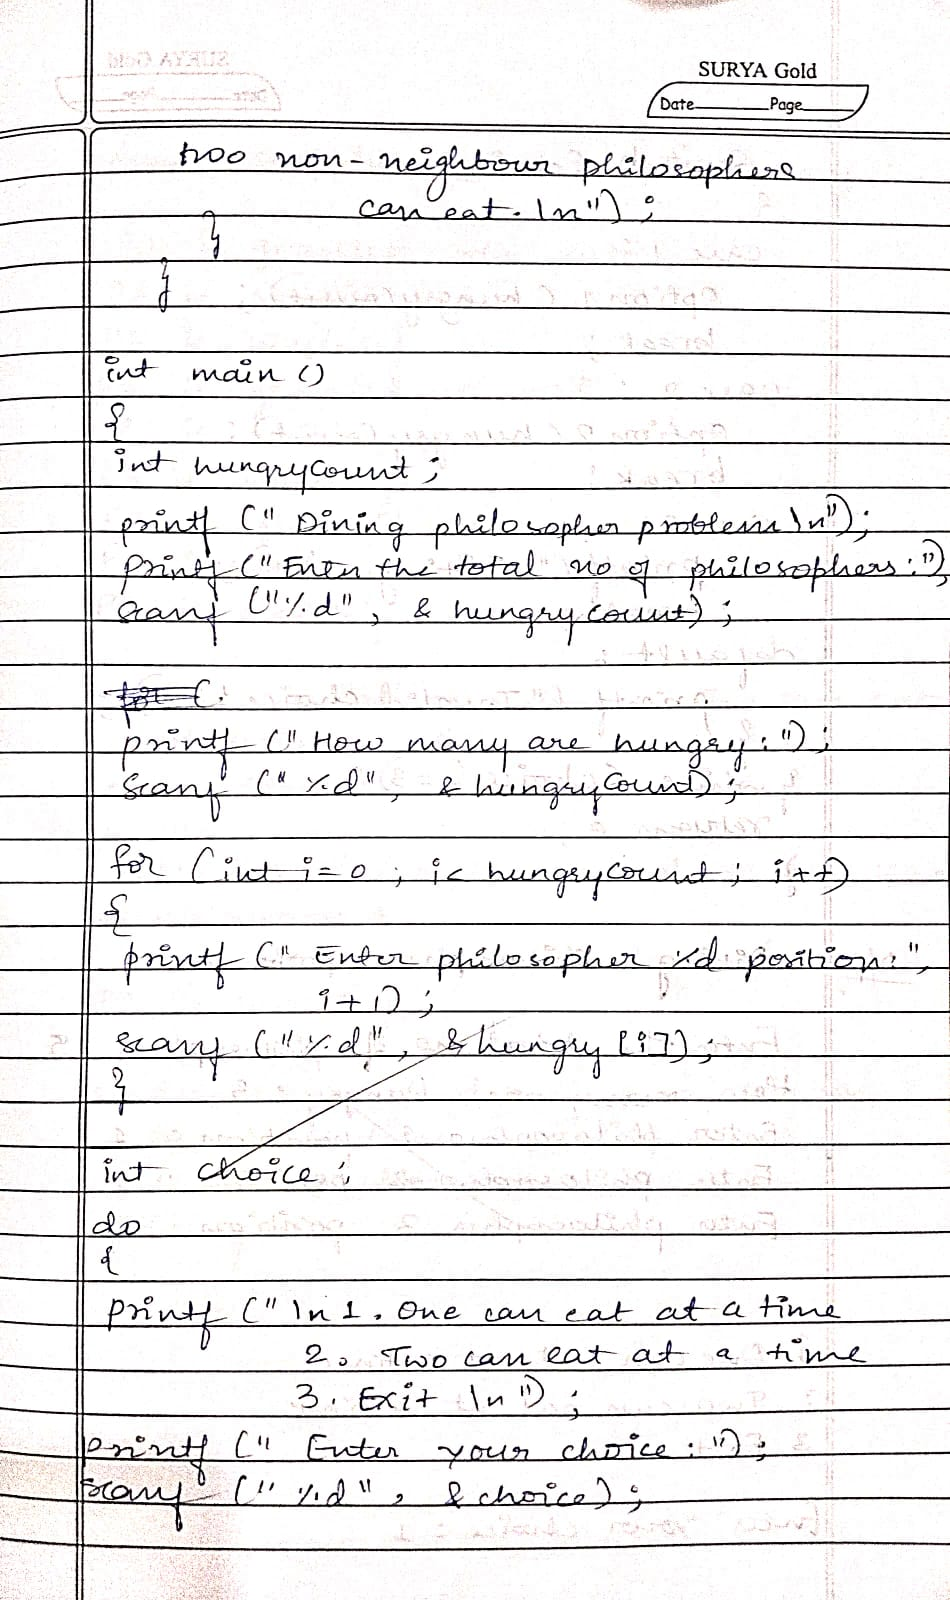 SURYA Gold
Date Page
two non-neighbour philosophers
can eat. \n");
}
}
int main ()
{
int hungrycount;
printf (" Dining philosopher problem \n");
printf (" Enter the total no of philosophers:");
scanf ("%d", & hungrycount);
for (
printf (" How many are hungry: ");
scanf (" %d", & hungryCount);
for (int i=0 ; i< hungrycount; i++)
{
printf (" Enter philosopher %d position: ",
i+1);
scanf (" %d", & hungry [i]);
}
int choice;
do
{
printf (" \n 1. One can eat at a time
2. Two can eat at a time
3. Exit \n");
printf (" Enter your choice: ");
scanf (" %d ", & choice);